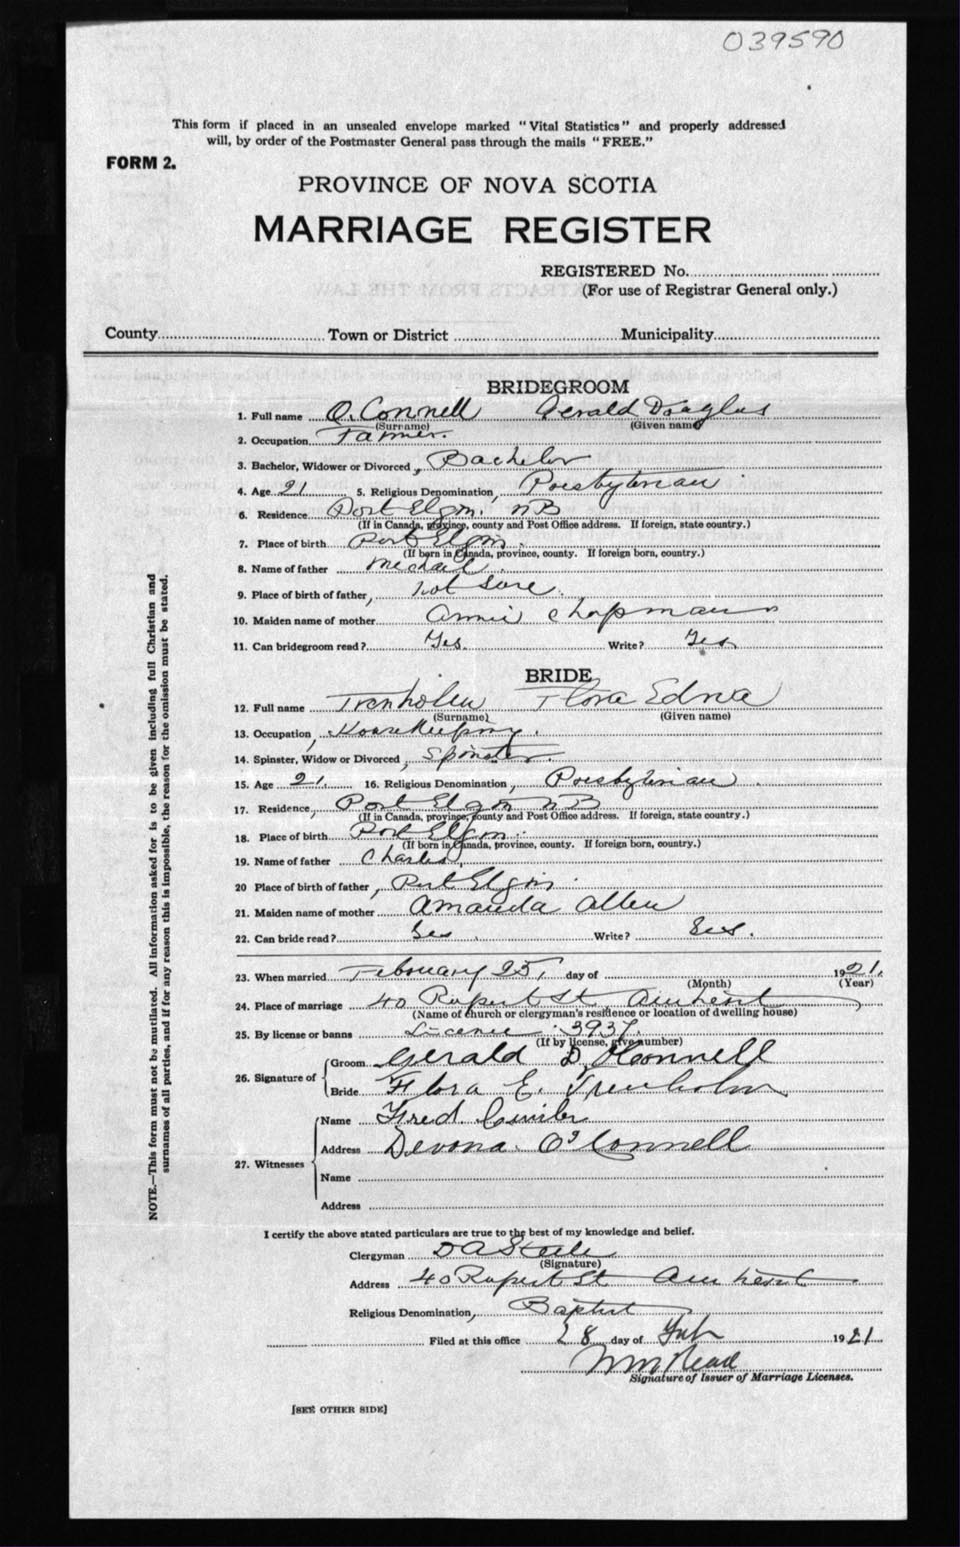 039590
This form if placed in an unsealed envelope marked "Vital Statistics" and properly addressed
will, by order of the Postmaster General pass through the mails "FREE."
FORM 2.
PROVINCE OF NOVA SCOTIA
MARRIAGE REGISTER
REGISTERED No.
(For use of Registrar General only.)
County Town or District Municipality
BRIDEGROOM
1. Full name O.Connell Gerald Douglas
(Surname) (Given name)
2. Occupation Farmer.
3. Bachelor, Widower or Divorced, Bachelor
4. Age 21 5. Religious Denomination, Presbyterian
6. Residence Port Elgin. NB
(If in Canada, province, county and Post Office address. If foreign, state country.)
7. Place of birth Port Elgin.
(If born in Canada, province, county. If foreign born, country.)
8. Name of father Michael.
9. Place of birth of father, not sure.
10. Maiden name of mother Annie Chapman
11. Can bridegroom read? Yes. Write? Yes
BRIDE
12. Full name Trenholm Flora Edna
(Surname) (Given name)
13. Occupation, Housekeeping.
14. Spinster, Widow or Divorced, Spinster.
15. Age 21. 16. Religious Denomination, Presbyterian
17. Residence, Port Elgin NB
(If in Canada, province, county and Post Office address. If foreign, state country.)
18. Place of birth Port Elgin.
(If born in Canada, province, county. If foreign born, country.)
19. Name of father Charles.
20 Place of birth of father, Port Elgin.
21. Maiden name of mother Amanda Allen
22. Can bride read? Yes. Write? Yes.
23. When married February 25, day of 1921.
(Month) (Year)
24. Place of marriage 40 Rupert St Amherst
(Name of church or clergyman's residence or location of dwelling house)
25. By license or banns Licence 3937.
(If by license, give number)
26. Signature of
Groom Gerald D. O'Connell
Bride Flora E. Trenholm
27. Witnesses
Name Fred
Address Devona O'Connell
Name
Address
I certify the above stated particulars are true to the best of my knowledge and belief.
Clergyman D A Steele
(Signature)
Address 40 Rupert St Amherst
Religious Denomination, Baptist
Filed at this office 28 day of Feb 1921
Wm Read
Signature of Issuer of Marriage Licenses.
[SEE OTHER SIDE]
NOTE.—This form must not be mutilated. All information asked for is to be given including full Christian and
surnames of all parties, and if for any reason this is impossible, the reason for the omission must be stated.